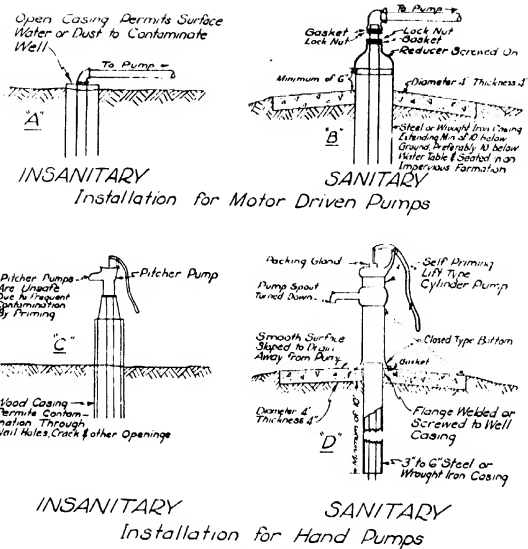 Open Casing Permits Surface
Water or Dust to Contaminate
Well
To Pump
"A"
INSANITARY
To Pump
Gasket
Lock Nut
Lock Nut
Gasket
Reducer Screwed On
Minimum of 6"
Diameter 4' Thickness 4"
"B"
Steel or Wrought Iron Casing
Extending Min of 10' below
Ground, Preferably 10' below
Water Table & Seated in an
Impervious Formation
SANITARY
Installation for Motor Driven Pumps
Pitcher Pumps
Are Unsafe
Due to Frequent
Contamination
By Priming
Pitcher Pump
"C"
Wood Casing
Permits Contam-
ination Through
Nail Holes, Crack & other Openings
INSANITARY
Packing Gland
Self Priming
Lift Type
Cylinder Pump
Pump Spout
Turned Down
Smooth Surface
Sloped to Drain
Away from Pump
Closed Type Bottom
Gasket
Diameter 4'
Thickness 4"
Flange Welded or
Screwed to Well
Casing
"D"
Minimum of 10'
3" to 6" Steel or
Wrought Iron Casing
SANITARY
Installation for Hand Pumps